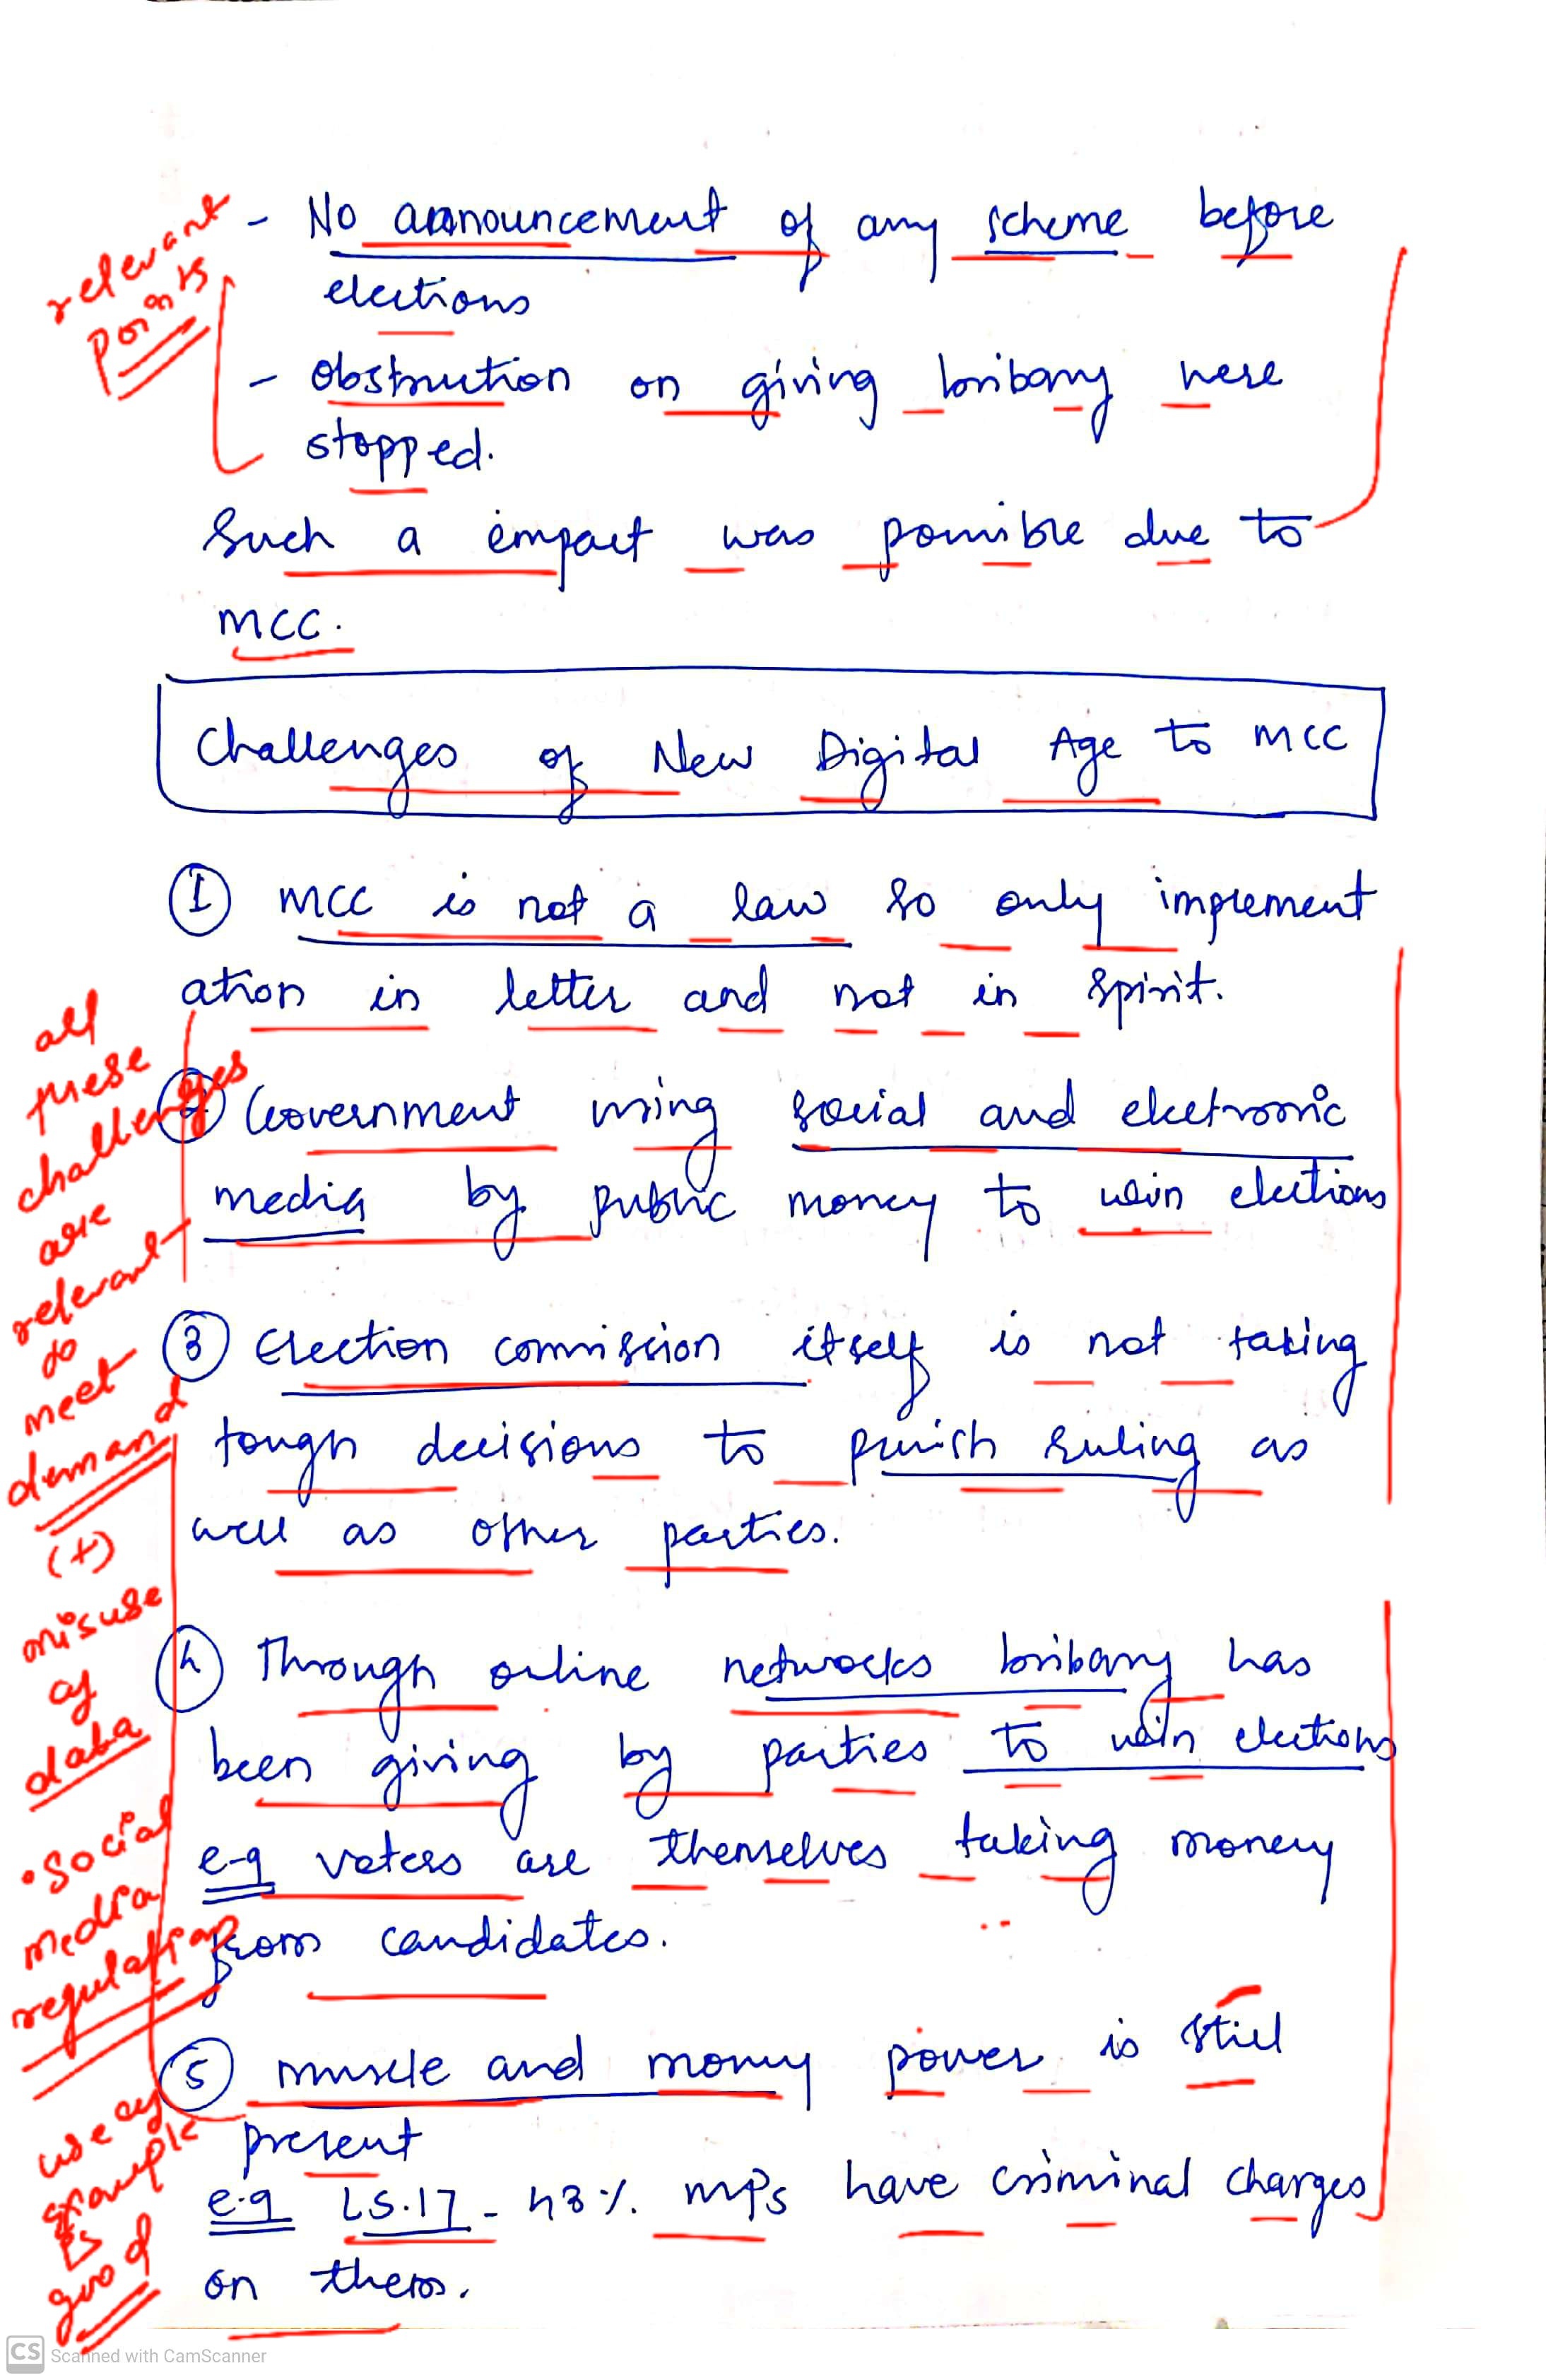 relevant
points
- No announcement of any scheme before
elections
- Obstruction on giving bribary were
stopped.
Such a impact was possible due to
MCC.
Challenges of New Digital Age to MCC
① MCC is not a law so only implement
ation in letter and not in spirit.
② Government using social and electronic
media by public money to win elections
③ Election commission itself is not taking
tough decisions to punish ruling as
well as other parties.
④ Through online networks bribary has
been giving by parties to win elections
e-g voters are themselves taking money
from candidates.
⑤ muscle and money power is still
present
e.g LS.17 - 43% MPs have criminal charges
on them.
all
these
challenges
are
relevant
to
meet
demand
(+)
misuse
of
data
• Social
media
regulation
use of
example
is
good
CS Scanned with CamScanner